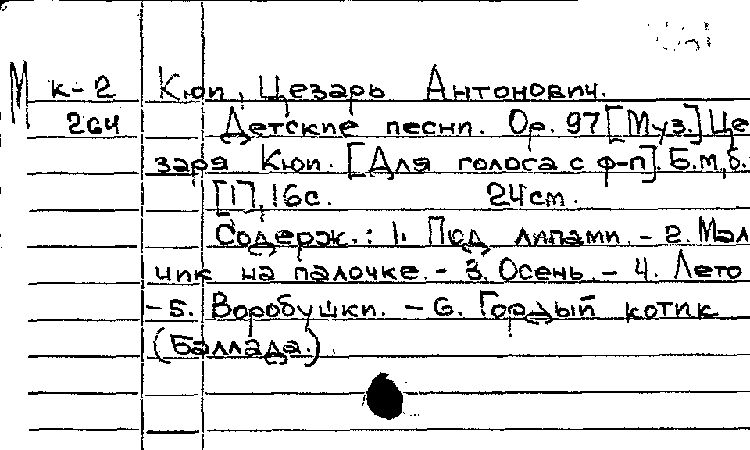 М к-2 Кюи, Цезарь Антонович.
264 Детские песни. Op. 97 [Муз.] Це
заря Кюи. [Для голоса с ф-п]. Б.м., б.
[1], 16с. 24см.
Содерж.: 1. Под липами. - 2. Мал
чик на палочке. - 3. Осень. - 4. Лето
- 5. Воробушки. - 6. Гордый котик
(Баллада.)